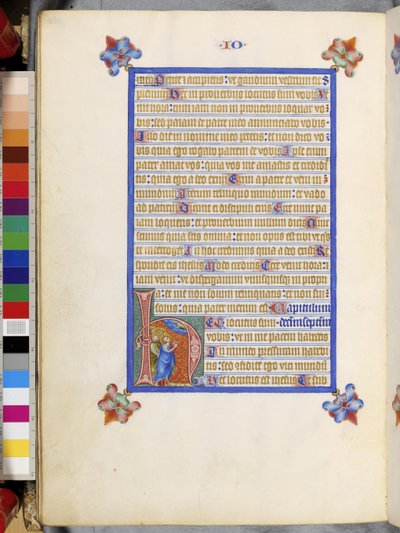 ·IO·
meo Petite et accipietis: ut gaudium vestrum sit
plenum Hec in proverbiis locutus sum vobis Ve
nit hora: cum iam non in proverbiis loquar vo
bis: sed palam de patre meo annunciabo vobis·
Illo die in nomine meo petetis: et non dico vo
bis quia ego rogabo patrem de vobis Ipse enim
pater amat vos: quia vos me amastis et credidi
stis: quia ego a deo exivi Exivi a patre et veni in
mundum Iterum relinquo mundum: et vado
ad patrem Dicunt ei discipuli eius Ecce nunc pa
lam loqueris: et proverbium nullum dicis Nunc
scimus quia scis omnia: et non opus est tibi ut quis
te interroget In hoc credimus quia a deo existi Re
spondit eis ihesus Modo creditis Ecce venit hora: et
iam venit: ut dispergamini unusquisque in propri
a: et me non solum relinquatis: et non sum
solus: quia pater mecum est Capitulum
HEC locutus sum decimumseptimum
vobis: ut in me pacem habeatis
In mundo pressuram habebi
tis: sed confidite ego vici mundum
Hec locutus est ihesus Et sub